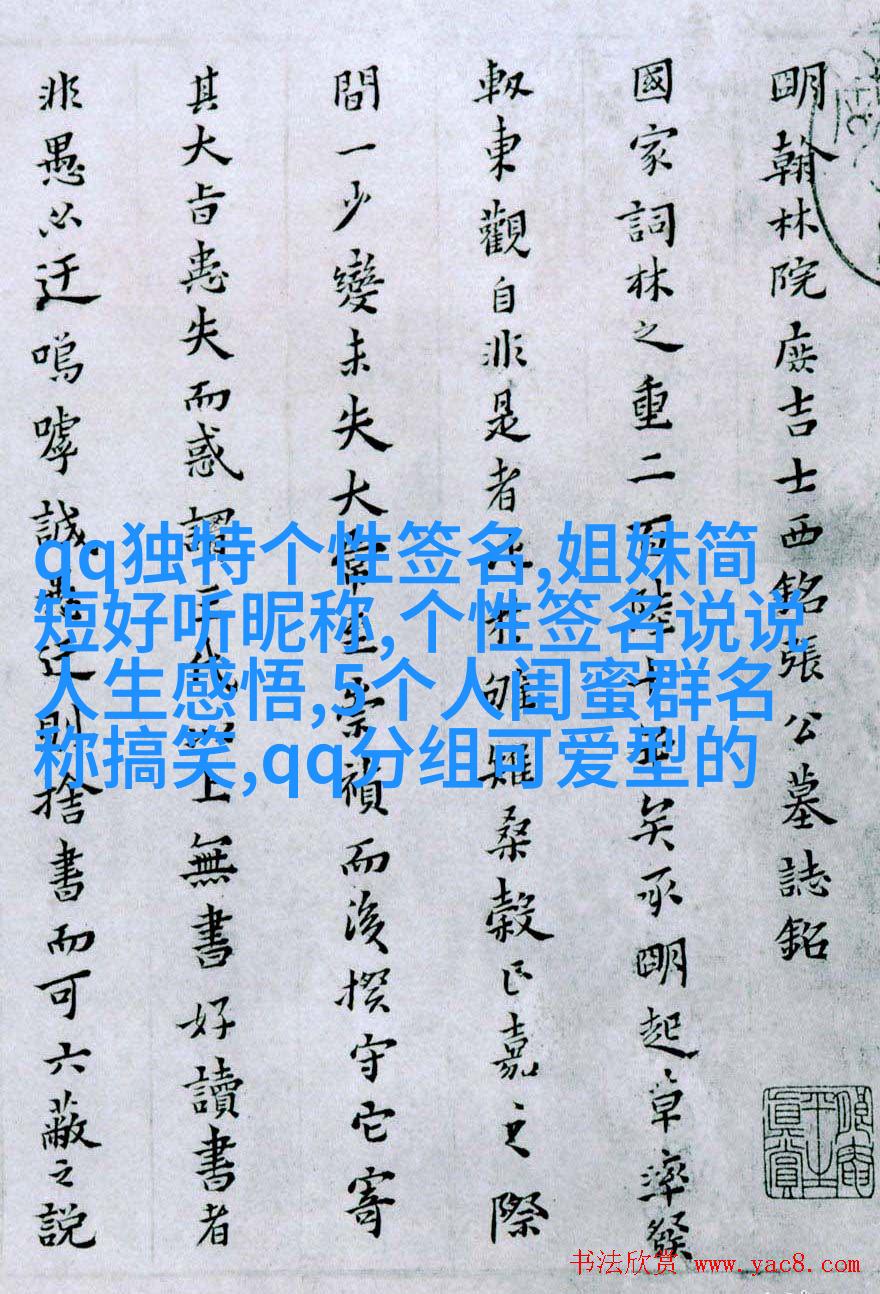 明翰林院庶吉士西銘張公墓誌銘
國家詞林之重二百陸十年矣承明起草
東觀自非是者桑穀之際
間一少變未失大常至崇禎而後揆守它寄
其大旨患失而惑謂三代以上無書好讀書者
非愚必迂嗚嘑誠愚迂則捨書而可六蔽之説
qq独特个性签名,姐妹简
短好听昵称,个性签名说说
人生感悟,5个人闺蜜群名
称搞笑,qq分组可爱型的
书法欣赏 www.yac8.com